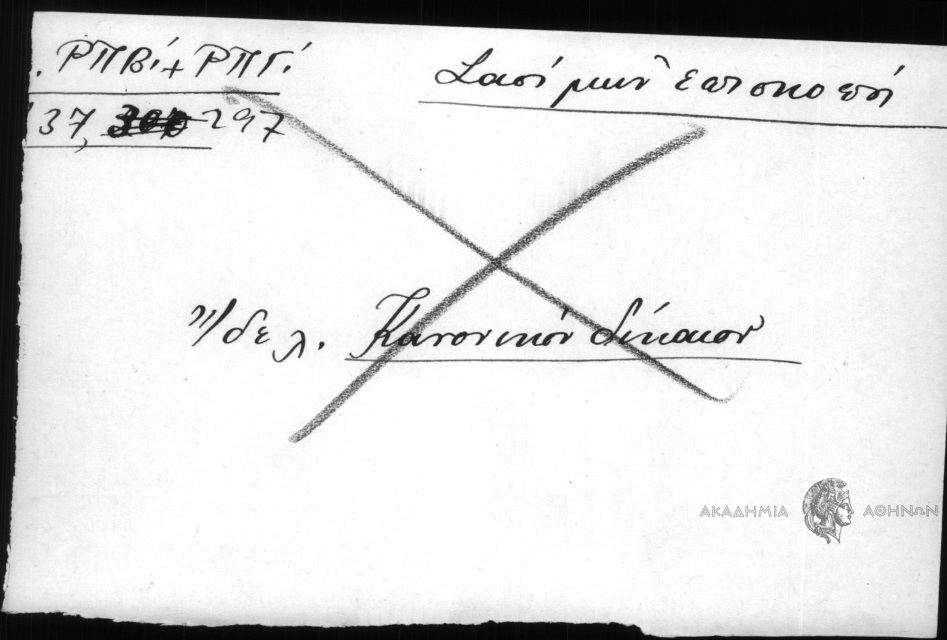 . ΡΠΒ΄.+ ΡΠΓ΄.
37, 297
ἐπισκοπή
δελ. Κανονικὸν δίκαιον
ΑΚΑΔΗΜΙΑ ΑΘΗΝΩΝ